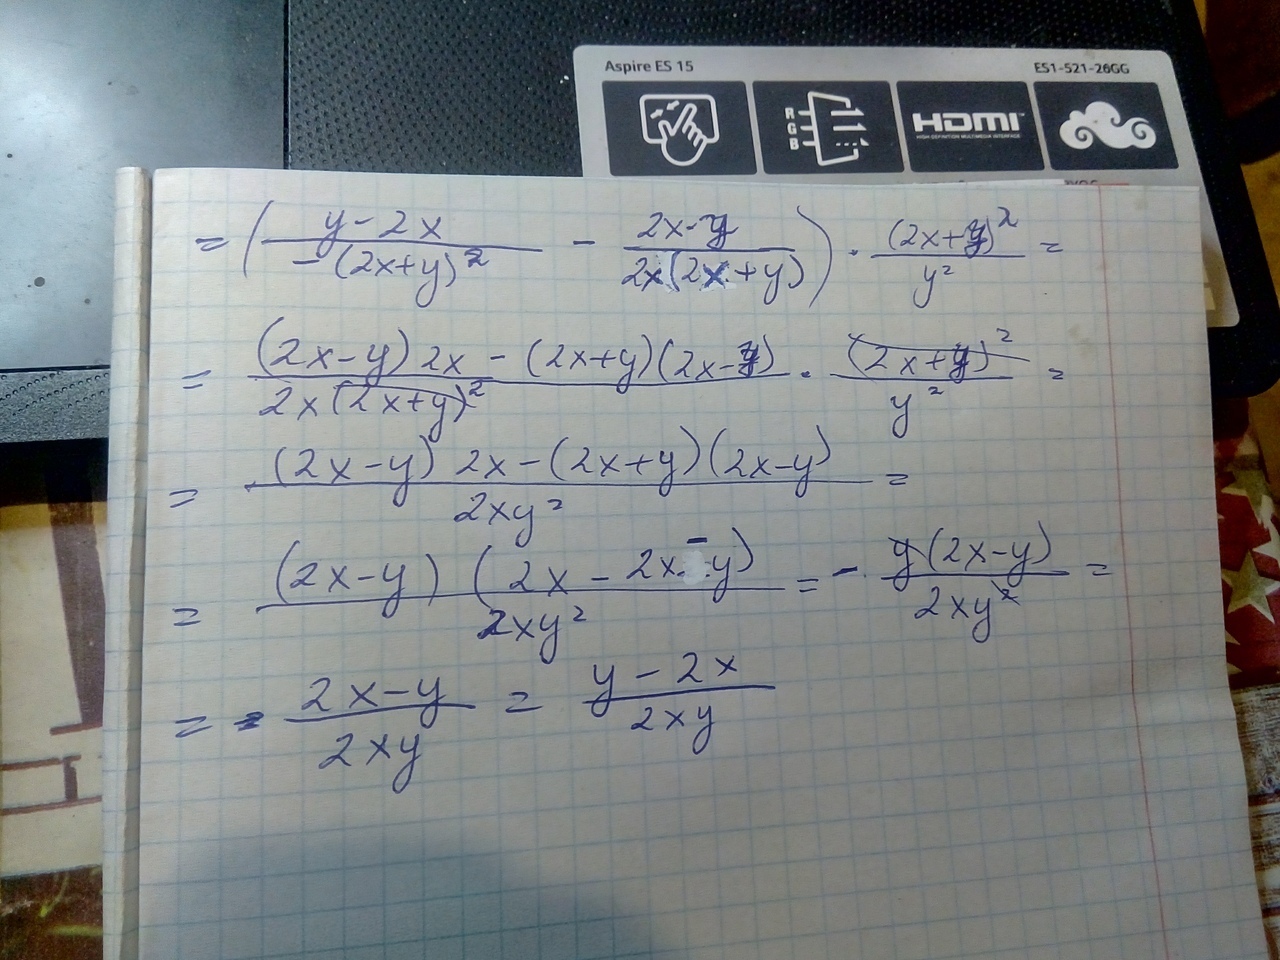 Aspire ES 15 ES1-521-26GG
R G B HDMI
HIGH-DEFINITION MULTIMEDIA INTERFACE
= ( (y - 2x)/(-(2x+y)²) - (2x-y)/(2x(2x+y)) ) · (2x+y)²/y² =
= ((2x-y) 2x - (2x+y)(2x-y))/(2x(2x+y)²) · (2x+y)²/y² =
= ((2x-y) 2x - (2x+y)(2x-y))/(2xy²) =
= ((2x-y) (2x - 2x - y))/(2xy²) = - y(2x-y)/(2xy²) =
= - (2x-y)/(2xy) = (y - 2x)/(2xy)